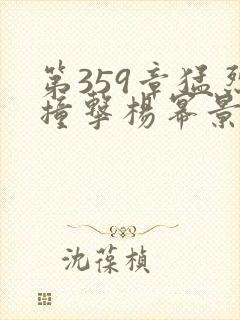 第359章猛烈
撞撃楊冪景
沈葆楨